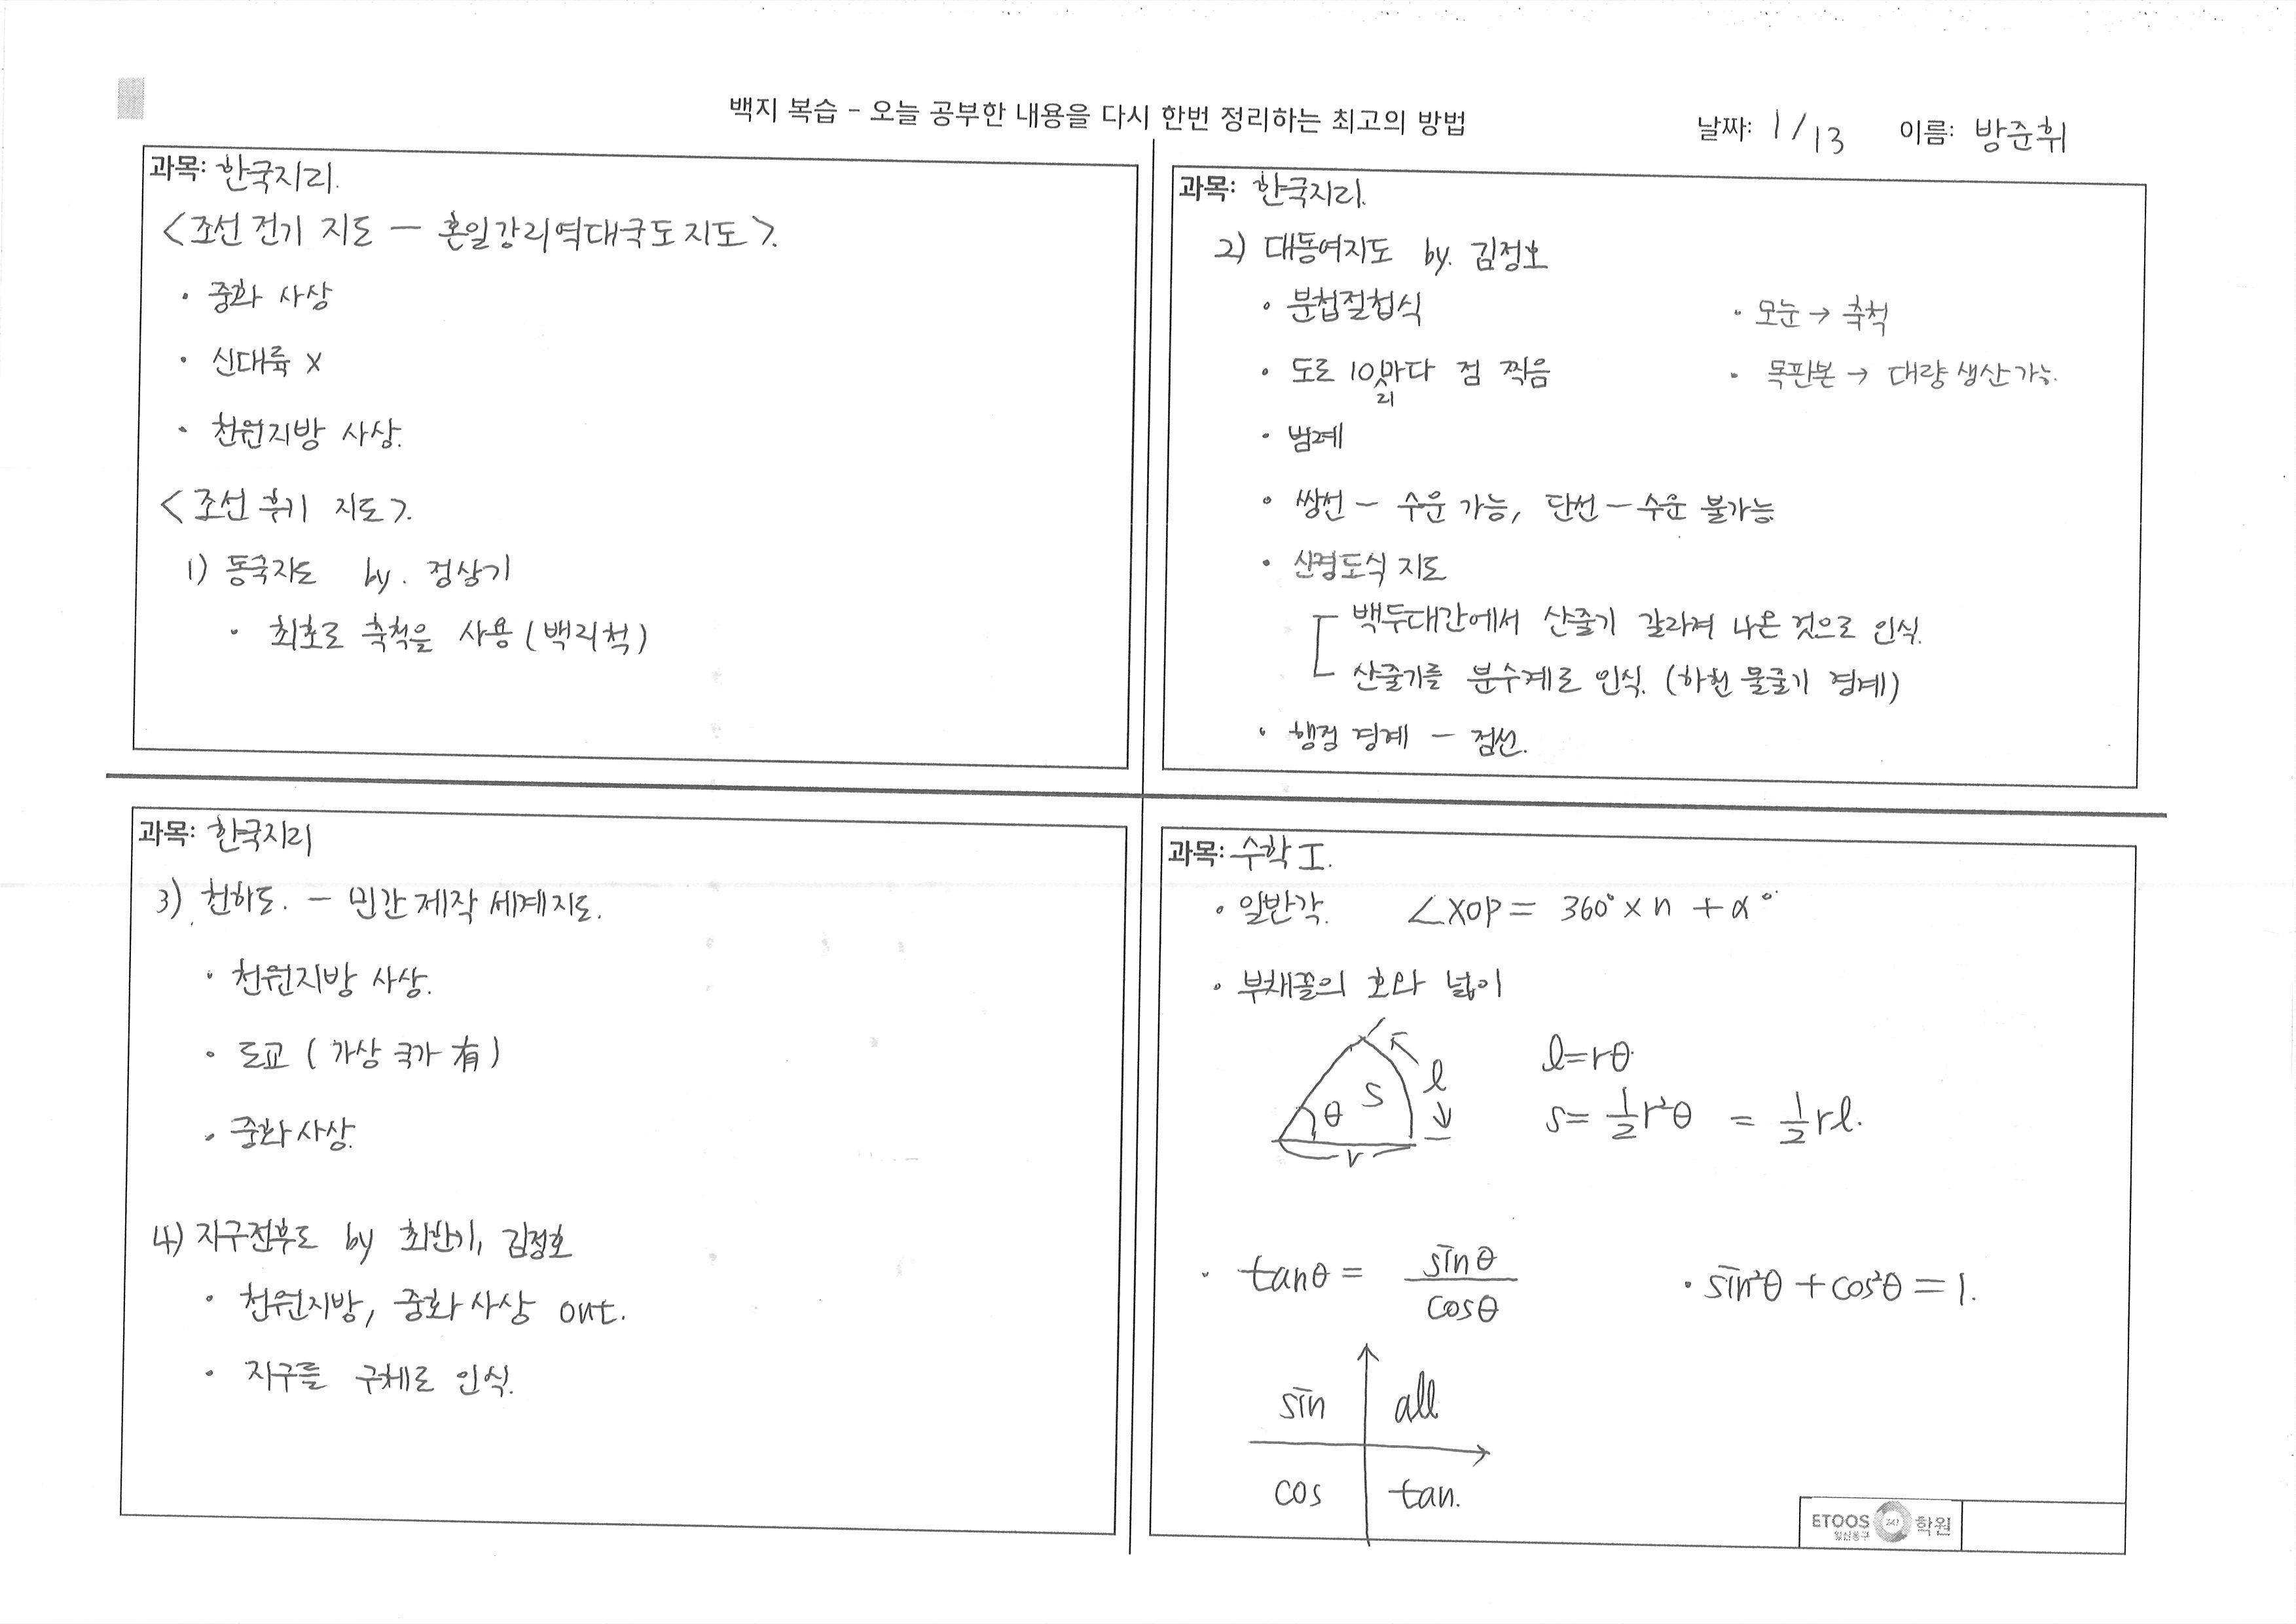 백지 복습 - 오늘 공부한 내용을 다시 한번 정리하는 최고의 방법
날짜: 1/13 이름: 방준휘
과목: 한국지리.
<조선 전기 지도 - 혼일강리역대국도지도>.
· 중화 사상
· 신대륙 X
· 천원지방 사상.
<조선 후기 지도>.
1) 동국지도 by. 정상기
· 최초로 축척을 사용 (백리척)
과목: 한국지리.
2) 대동여지도 by. 김정호
· 분첩절첩식
· 모눈 → 축척
· 도로 10리마다 점 찍음
· 목판본 → 대량 생산 가능.
· 범례
· 쌍선 - 수운 가능, 단선 - 수운 불가능
· 산경도식 지도
백두대간에서 산줄기 갈라져 나온 것으로 인식.
산줄기를 분수계로 인식. (하천 물줄기 경계)
· 행정 경계 - 점선.
과목: 한국지리
3) 천하도. - 민간 제작 세계지도.
· 천원지방 사상.
· 도교 (가상 국가 有)
· 중화사상.
4) 지구전후도 by 최한기, 김정호
· 천원지방, 중화사상 out.
· 지구를 구체로 인식.
과목: 수학 I.
· 일반각. ∠XOP = 360° × n + α°
· 부채꼴의 호와 넓이
θ S l r
l = rθ
S = 1/2 r²θ = 1/2 rl.
· tanθ = sinθ / cosθ
· sin²θ + cos²θ = 1.
sin all
cos tan.
ETOOS 247 학원